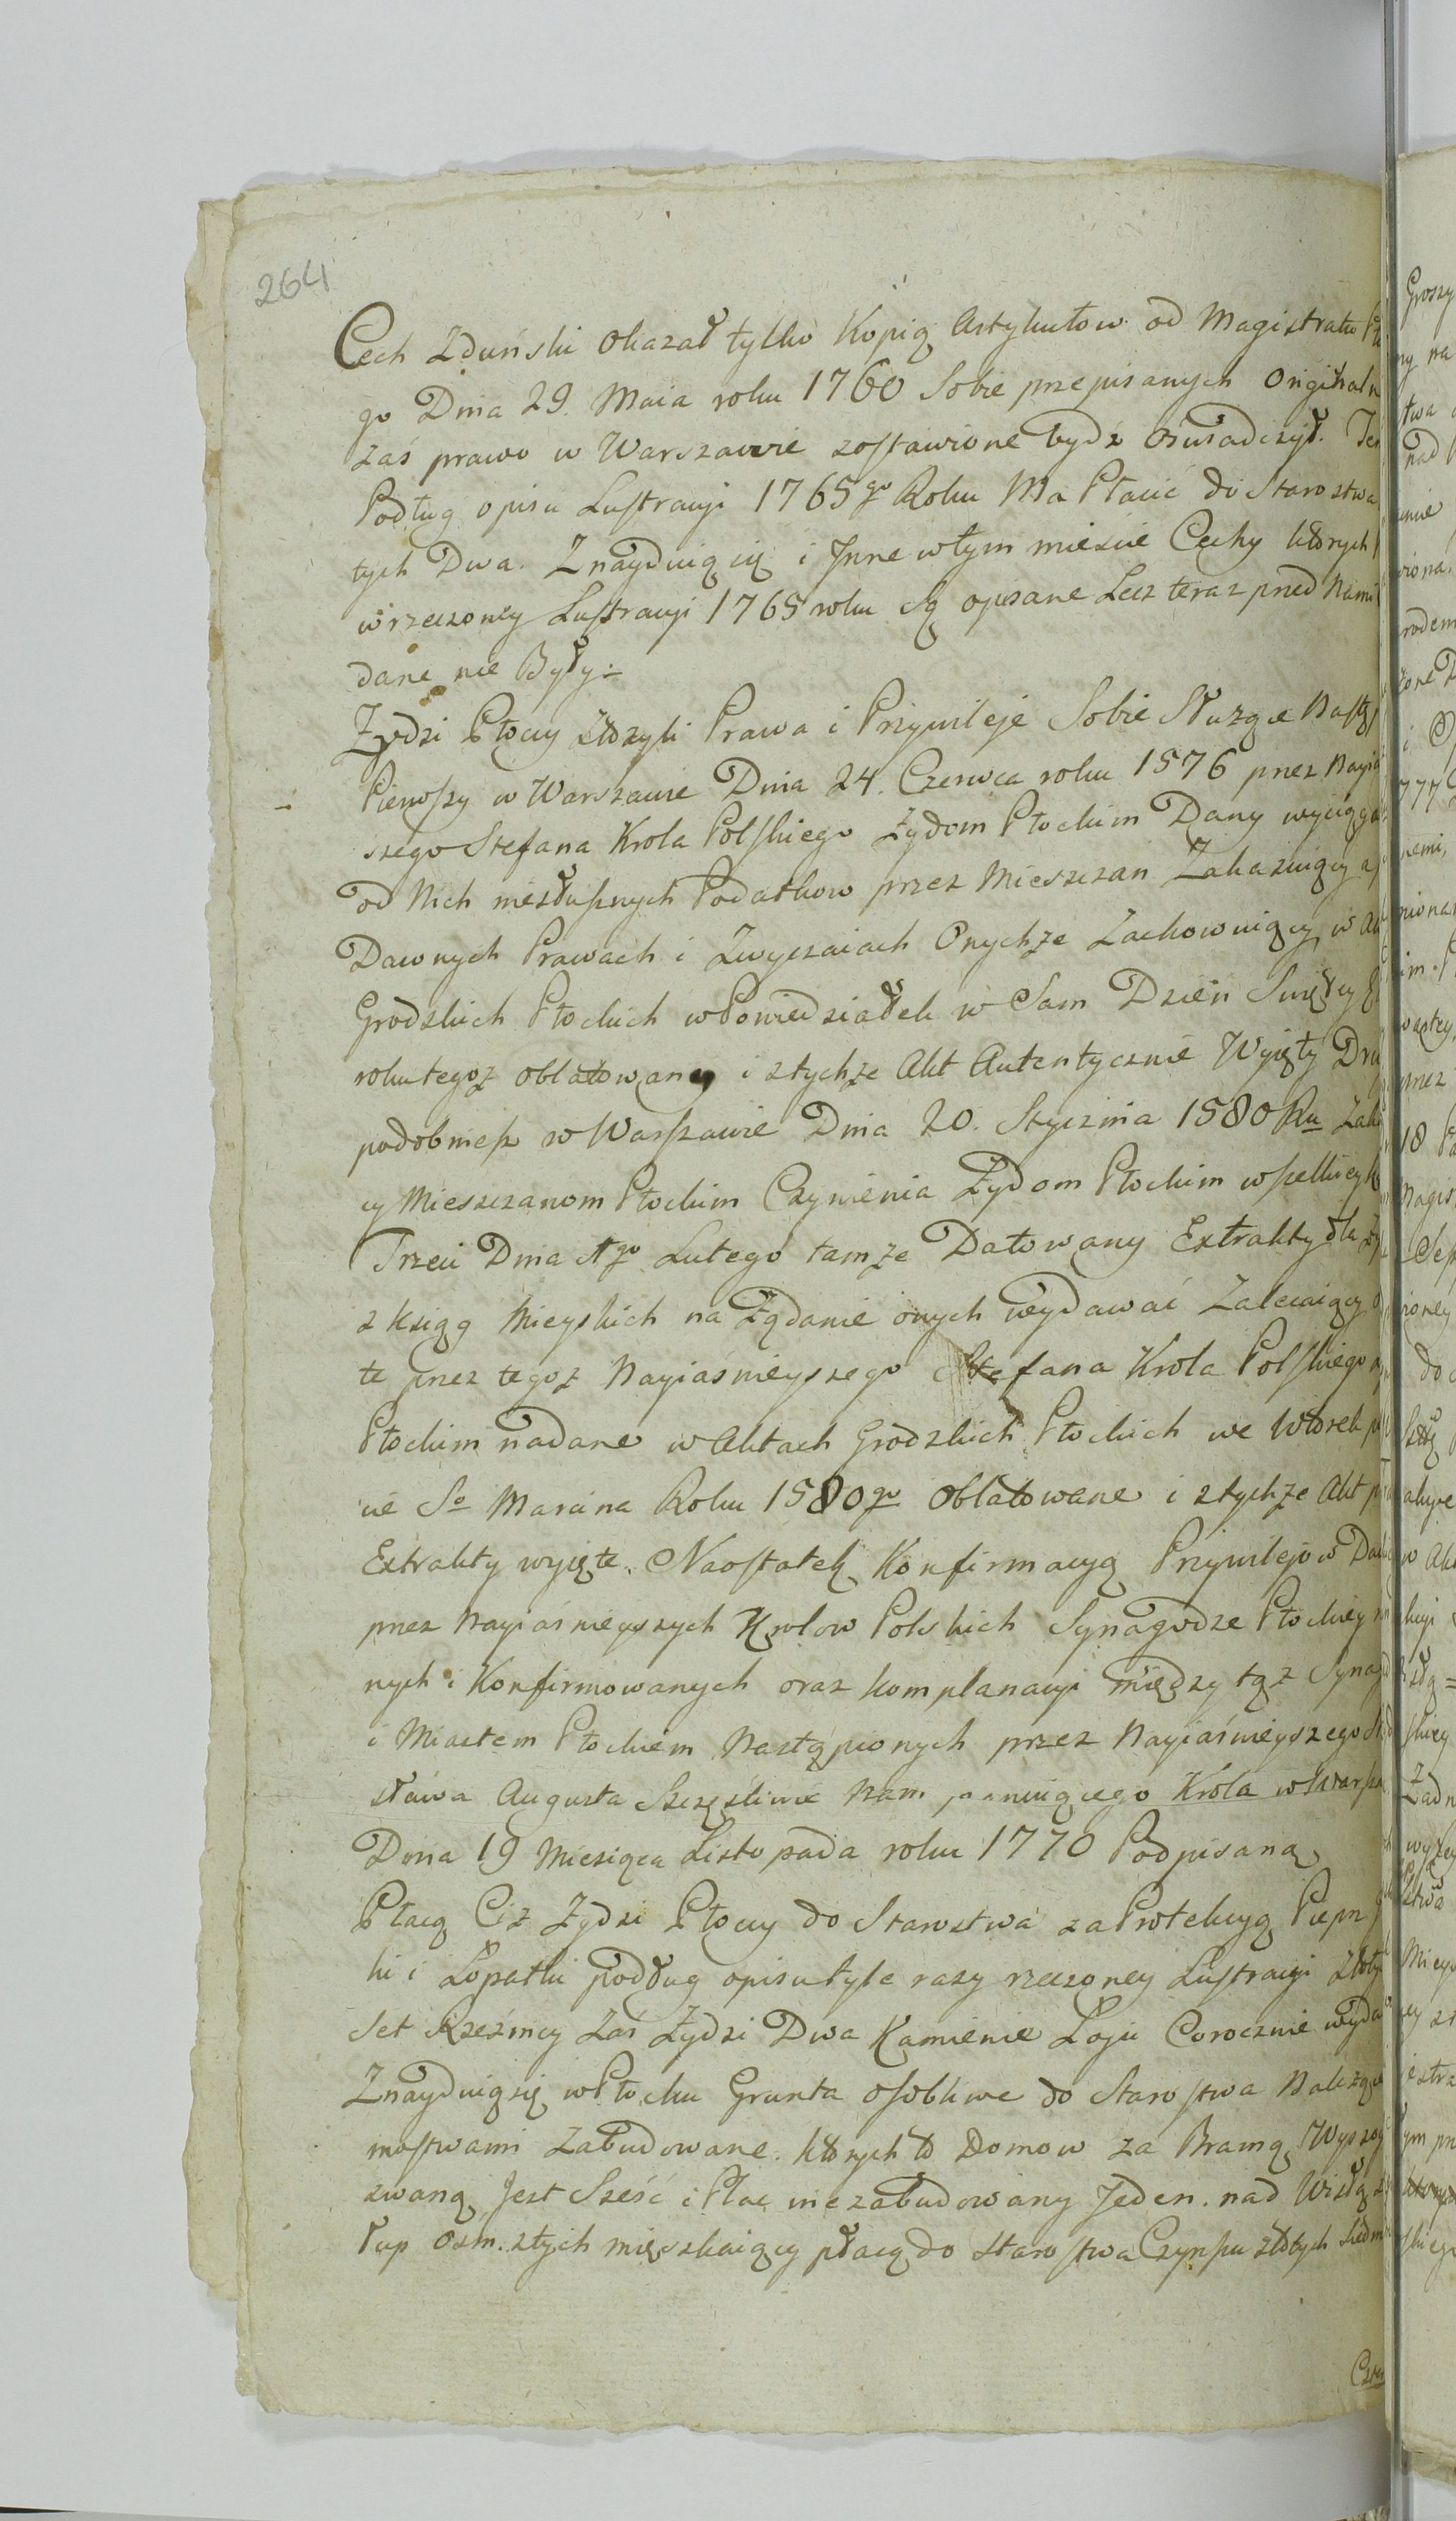 264
Cech Zduński Okazał tylko Kopią Artykułow od Magistratu
go Dnia 29. Maia roku 1760 Sobie przepisanych Originaln
zaś prawo w Warszawie zostawione bydź oświadczył. Ten
Podług opisu Lustracyi 1765go Roku Ma Płacić do Starostwa
tych Dwa. Znayduią się i Inne w tym mieście Cechy których
w rzeczoney Lustracyi 1765 roku Są opisane Lecz teraz przed Nami
dane nie Były.
Żydzi Płoccy złożyli Prawa i Przywileje Sobie Służące Nastę
Pierwszy w Warszawie Dnia 24. Czerwca roku 1576 przez Nayia
szego Stefana Krola Polskiego Żydom Płockim Dany wyciąga
od Nich niesłusznych Podatkow przez Mieszczan Zakazuiący a
Dawnych Prawach i Zwyczaiach Onychże Zachowuiący w Ak
Grodzkich Płockich w Poniedziałek w Sam Dzień Swięty
roku tegoż oblatowany i z tychże Akt Autentycznie Wyięty Dru
podobnież w Warszawie Dnia 20. Stycznia 1580 Ru Zaka
cy Mieszczanom Płockim Czynienia Żydom Płockim wszelkiey
Trzeci Dnia 1go Lutego tamże Datowany Extrakty dla
z ksiąg Mieyskich na Żądanie onych wydawać Zalecaiący
te przez tegoż Nayiaśnieyszego Stefana Krola Polskiego
Płockim nadane w Aktach Grodzkich Płockich we Wtorek
ie So Marcina Roku 1580go Oblatowane i z tychże Akt
Extrakty wyięte. Naostatek Konfirmacyą Przywilejow Da
przez Nayiaśnieyszych Krolow Polskich Synagodze Płockiey
nych i Konfirmowanych oraz komplanacyi między tąż Synag
i Miastem Płockiem Nastąpionych przez Nayiaśnieyszego
sława Augusta Szczęśliwie Nam panuiącego Krola w Warsza
Dnia 19 Miesiąca Listopada roku 1770 Podpisaną
Płacą Ciż Żydzi Płoccy do Starostwa za Protekcyą Pieprz
ki i Łopatki podług opisu tyle razy rzeczoney Lustracyi Złoty
Set Rzeźnicy Zaś Żydzi Dwa Kamienie Łoju Corocznie wyda
Znayduią się w Płocku Grunta osobliwe do Starostwa Należące
mostwami Zabudowane. których to Domow za Bramą Wyszog
zwaną Jest Sześć i Plac niezabudowany Jeden. nad Wisłą
łup osm. z tych mięszkaiący płacą do Starostwa Czynszu złotych Siedm